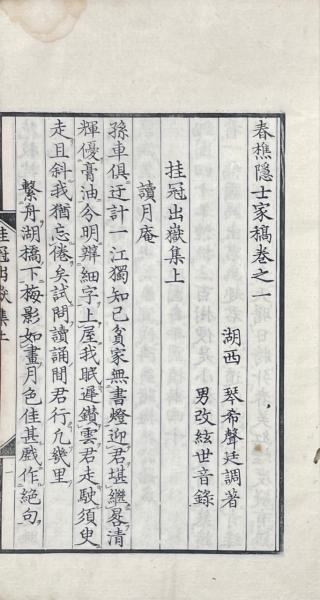 春樵隱士家稿卷之一
湖西 琴希聲廷調著
男改絃世音錄
挂冠出嶽集上
讀月庵
孫車俱迂計一江獨知己貧家無書燈迎君堪繼晷清
輝優膏油分明辨細字上屋我眠遲鑽雲君走駛須臾
走且斜我猶忘倦矣試問讀誦間君行九幾里
繫舟湖橋下梅影如畫月色佳甚戲作絕句
挂冠出嶽集上